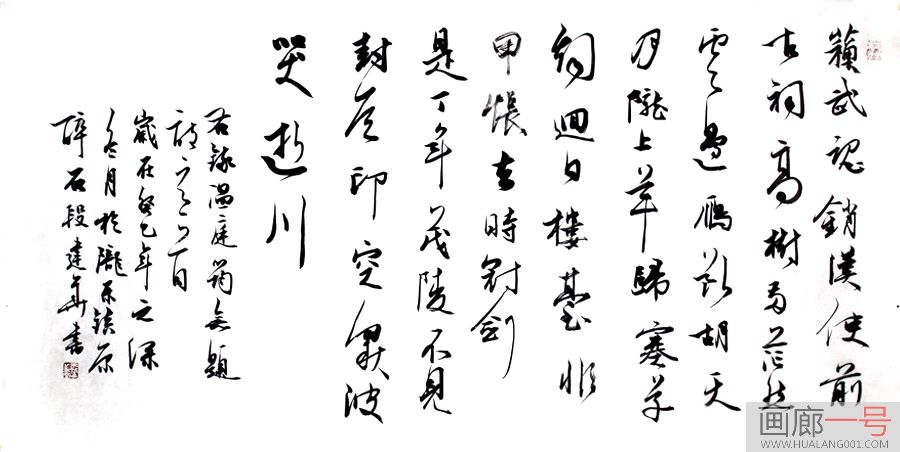 蘇武魂銷漢使前
古祠高樹兩茫然
雲邊雁断胡天
月隴上羊歸塞草
烟迴日樓臺非
甲帳去時冠劍
是丁年茂陵不見
封侯印空波
哭逝川
右錄温庭筠無題
詩之一首
歲在癸巳年之深
冬月於隴东鎮原
醉石段建華書
画廊一号
WWW.HUALANG001.COM